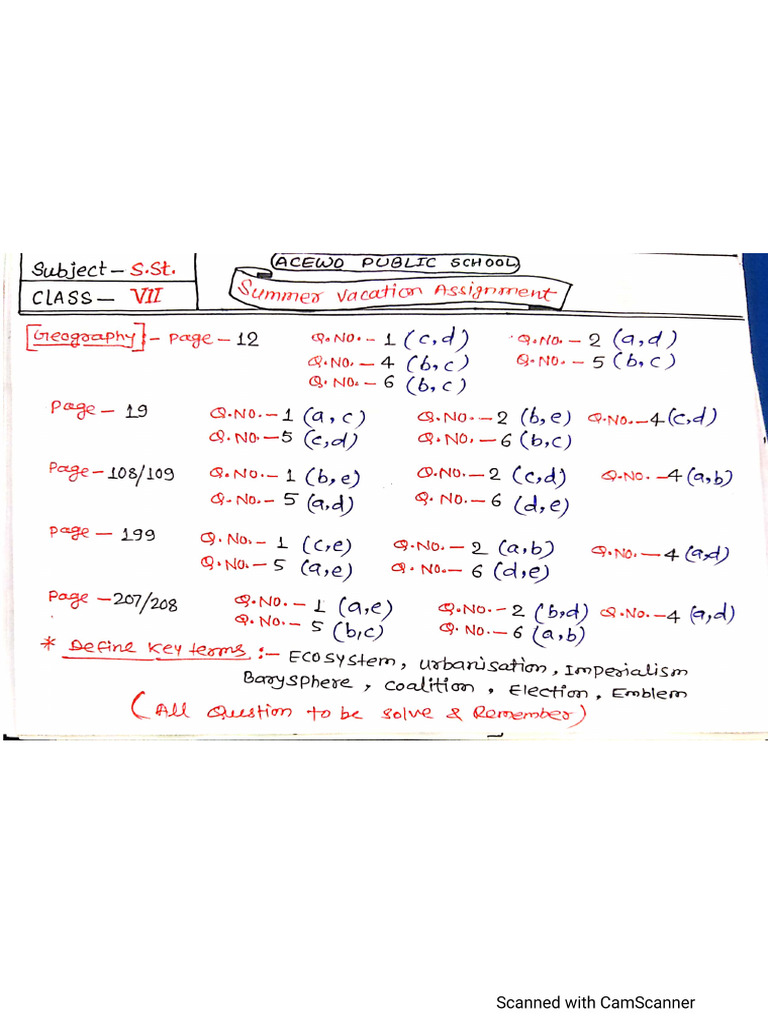 Subject - S.St.
CLASS - VII
ACEWO PUBLIC SCHOOL
Summer Vacation Assignment
[Geography] :- Page - 12 Q.No. - 1 (c,d) Q.No. - 2 (a,d)
Q.No. - 4 (b,c) Q.No. - 5 (b,c)
Q.No. - 6 (b,c)
Page - 19 Q.No. - 1 (a,c) Q.No. - 2 (b,e) Q.No. - 4 (c,d)
Q.No. - 5 (c,d) Q.No. - 6 (b,c)
Page - 108/109 Q.No. - 1 (b,e) Q.No. - 2 (c,d) Q.No. - 4 (a,b)
Q.No. - 5 (a,d) Q.No. - 6 (d,e)
Page - 199 Q.No. - 1 (c,e) Q.No. - 2 (a,b) Q.No. - 4 (a,d)
Q.No. - 5 (a,e) Q.No. - 6 (d,e)
Page - 207/208 Q.No. - 1 (a,e) Q.No. - 2 (b,d) Q.No. - 4 (a,d)
Q.No. - 5 (b,c) Q.No. - 6 (a,b)
* Define Key terms :- Ecosystem, Urbanisation, Imperialism
Barysphere, Coalition, Election, Emblem
(All Question to be solve & Remember)
Scanned with CamScanner